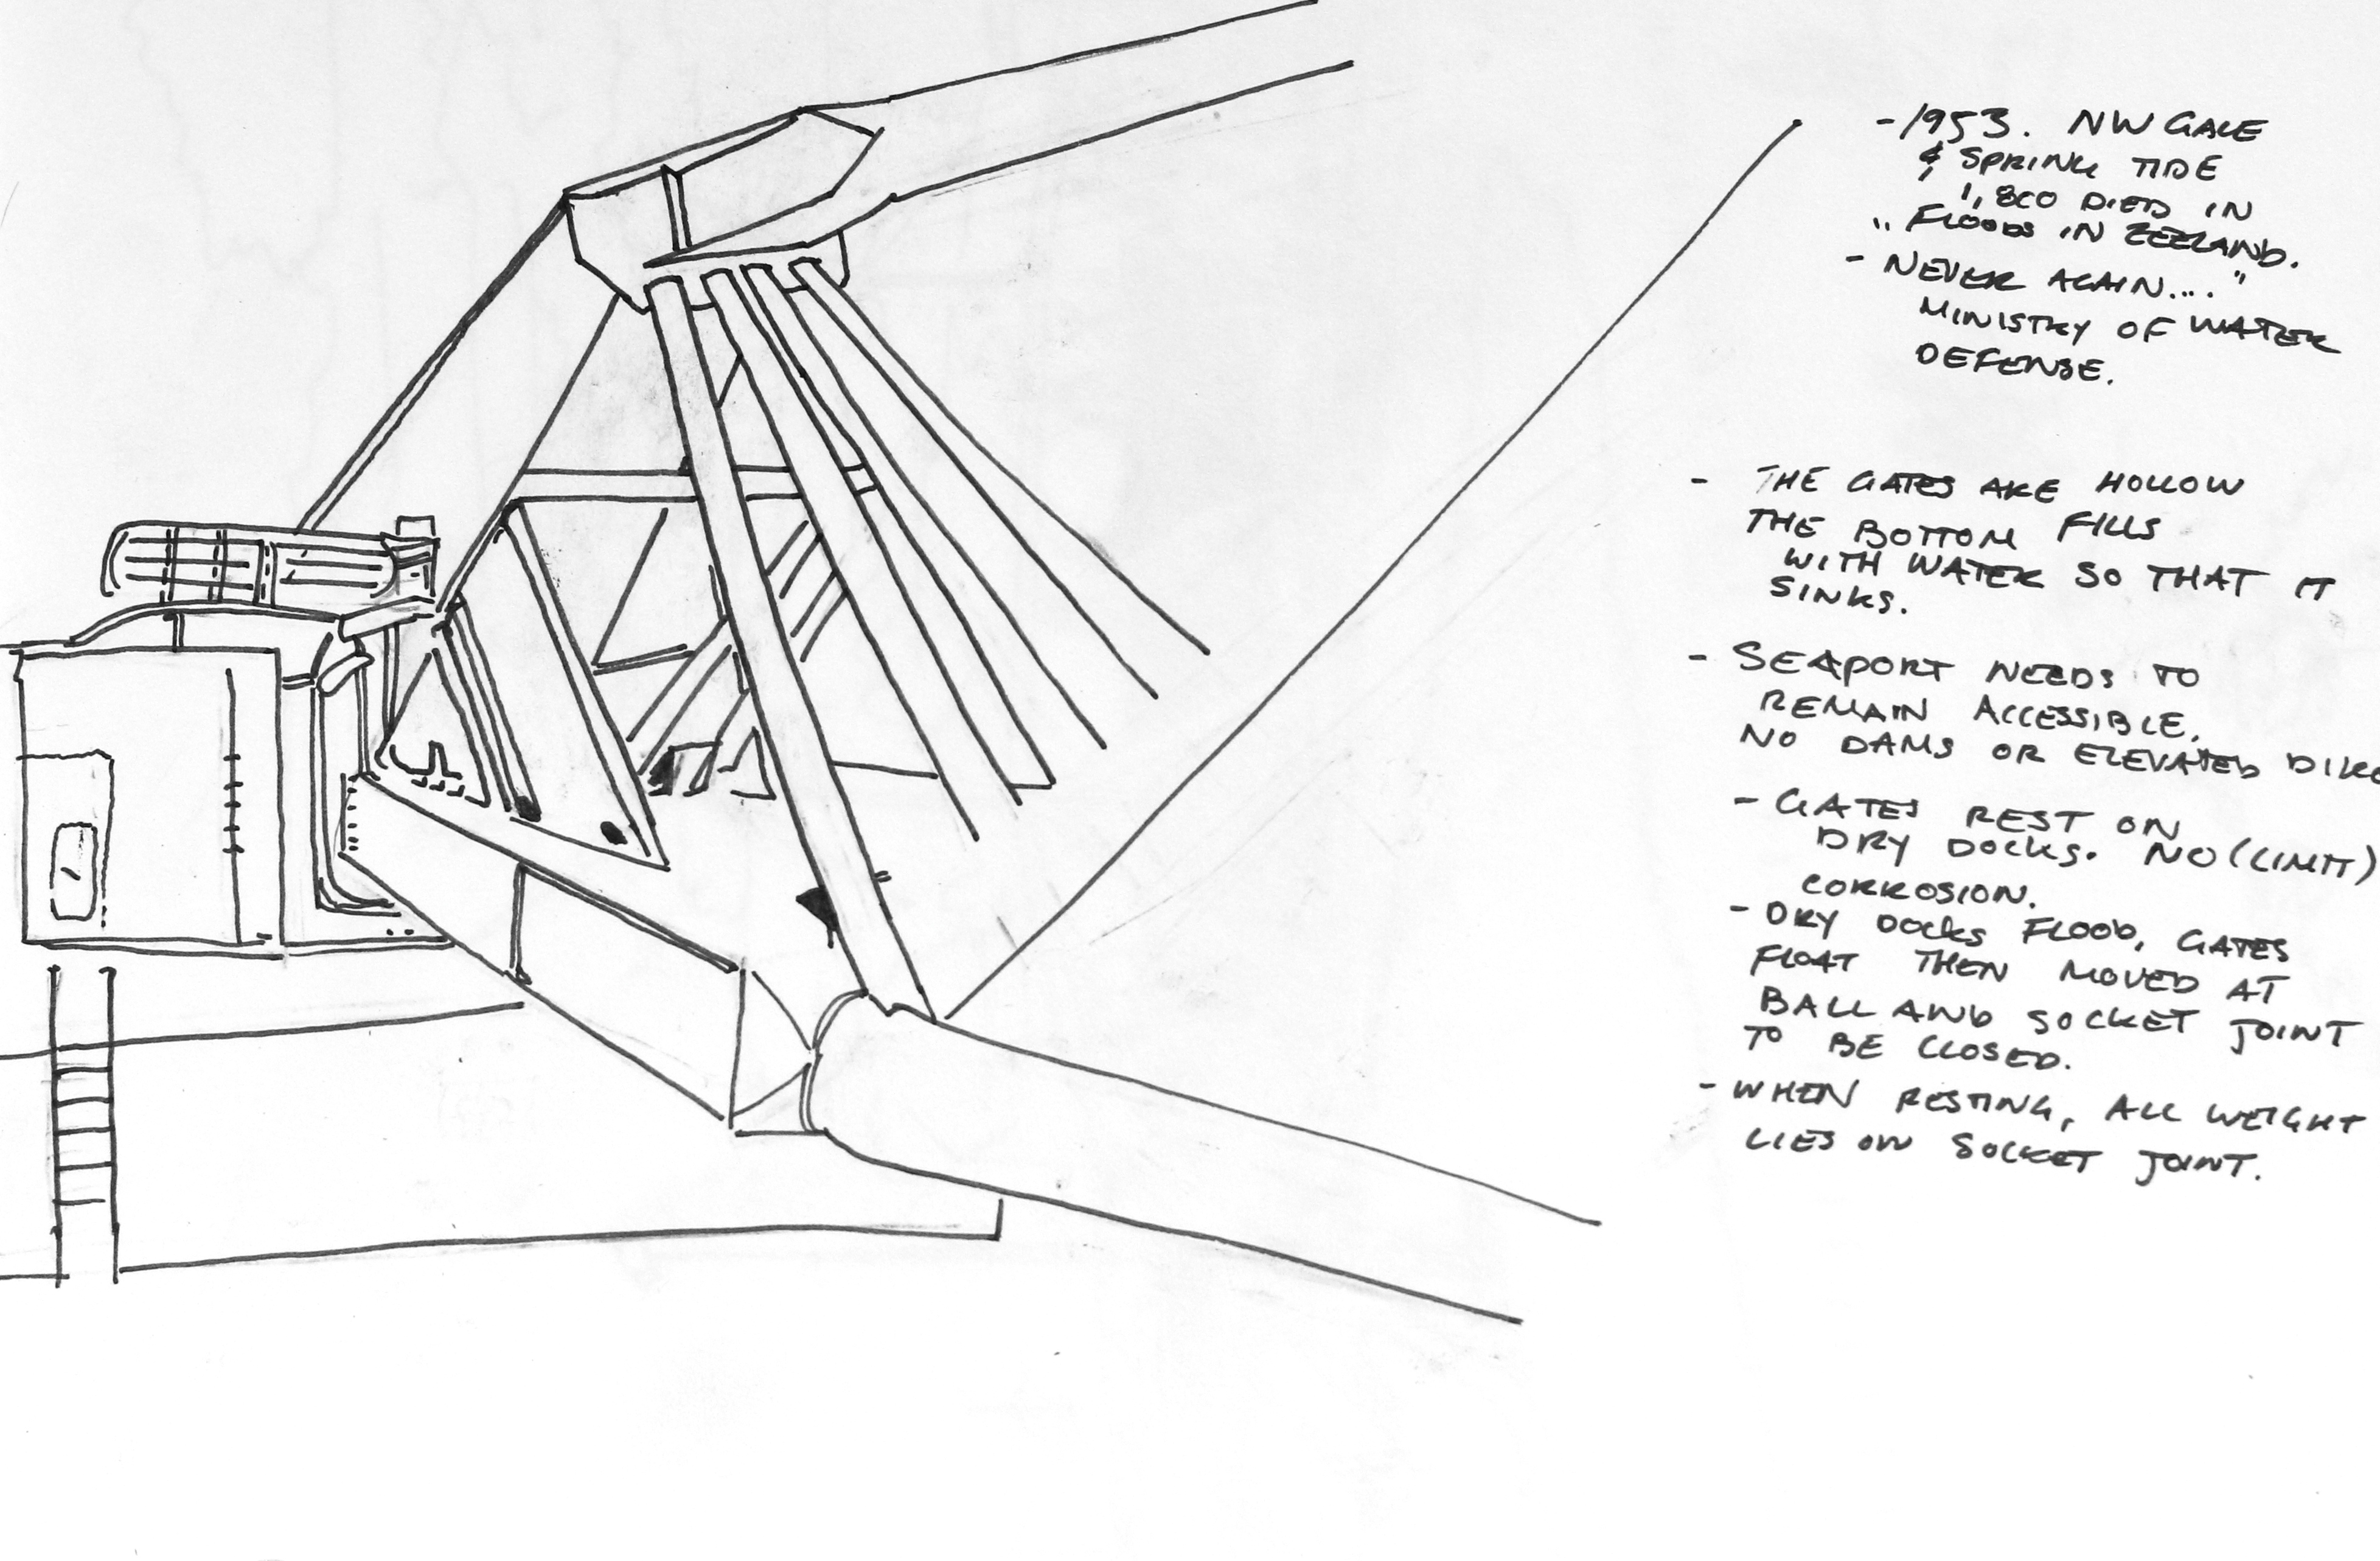 - 1953. NW GALE
& SPRING TIDE
1,800 DIED IN
" FLOODS IN ZEELAND.
- NEVER AGAIN...."
MINISTRY OF WATER
DEFENSE.
- THE GATES ARE HOLLOW
THE BOTTOM FILLS
WITH WATER SO THAT IT
SINKS.
- SEAPORT NEEDS TO
REMAIN ACCESSIBLE.
NO DAMS OR ELEVATED DIKE
- GATES REST ON
DRY DOCKS. NO (LIMIT)
CORROSION.
- DRY DOCKS FLOOD, GATES
FLOAT THEN MOVED AT
BALL AND SOCKET JOINT
TO BE CLOSED.
- WHEN RESTING, ALL WEIGHT
LIES ON SOCKET JOINT.